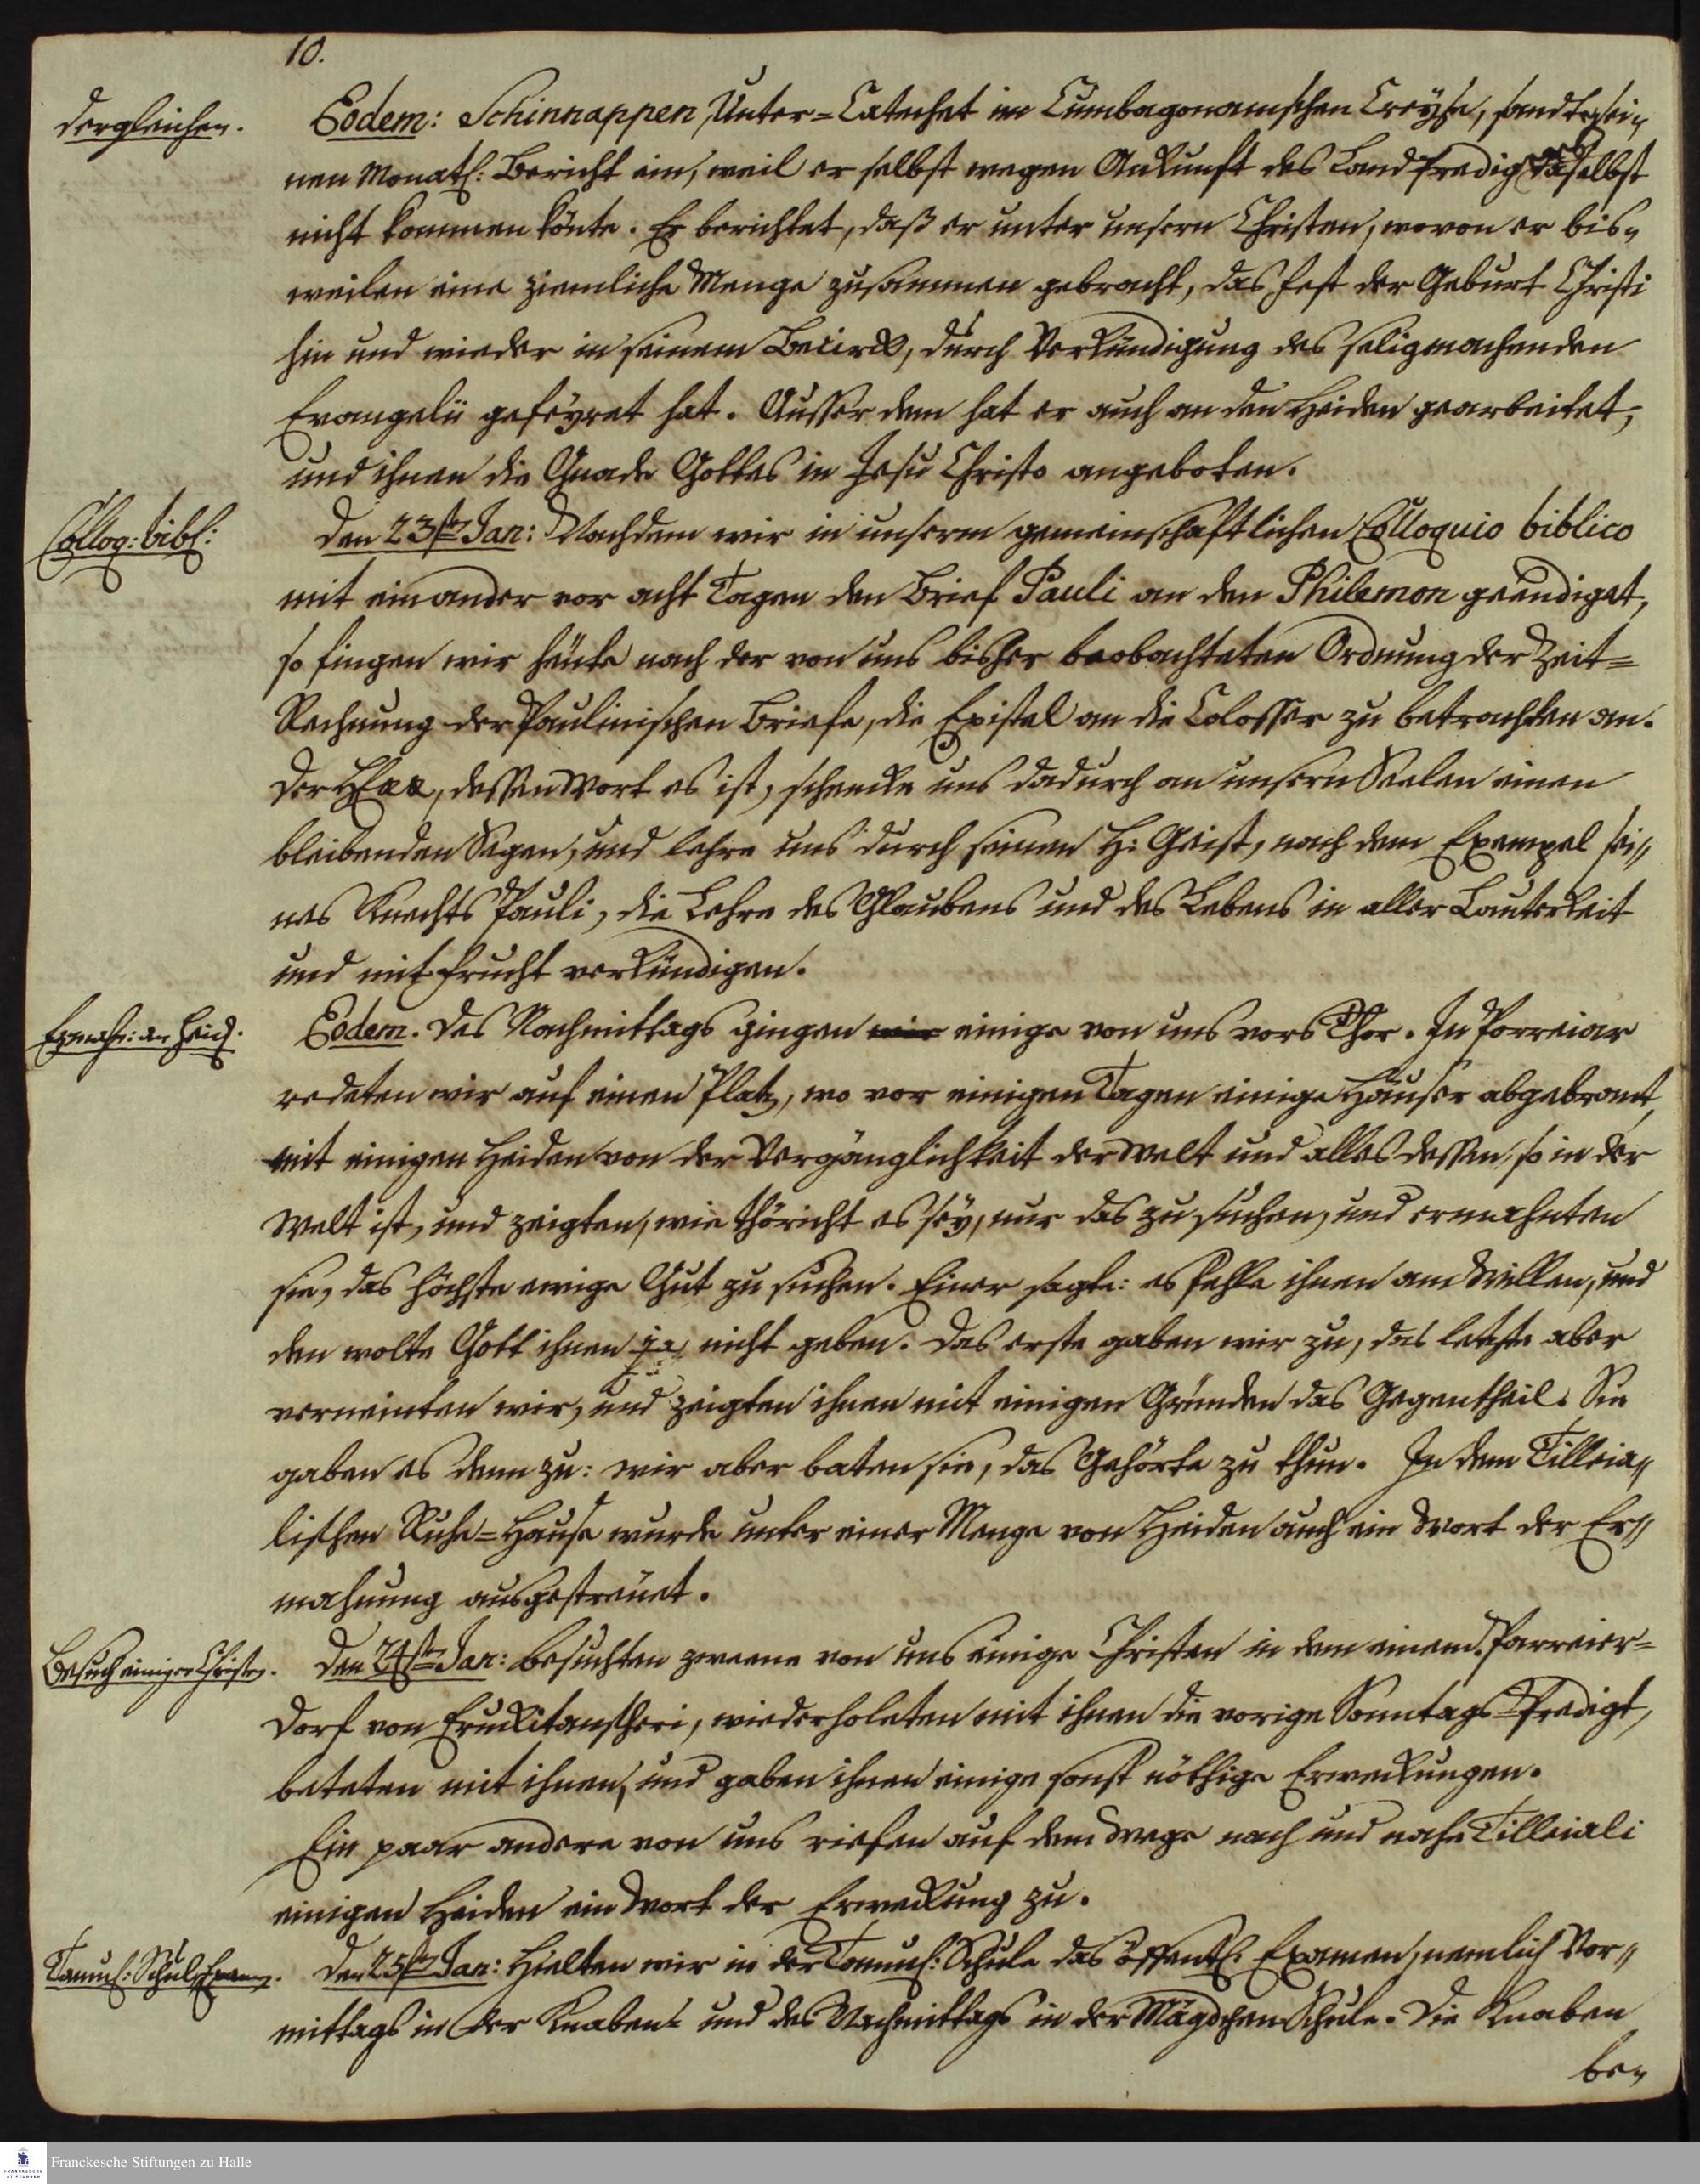 10.
dergleichen.
Eodem: Schinnappen, Unter-Catechet im Cumbagonamschen Creyse, sandte sei-
nen Monatl: Bericht ein, weil er selbst wegen Ankunft des Landpredigers daselbst
nicht kommen könte. Er berichtet, daß er unter unsern Christen, wovon er bis-
weilen eine ziemliche Menge zusammen gebracht, das Fest der Geburt Christi
hin und wieder in seinem Bezirck, durch Verkündigung des seligmachenden
Evangelii gefeyret hat. Ausser dem hat er auch an den Heiden gearbeitet,
und ihnen die Gnade Gottes in Jesu Christo angeboten.
Colloq: bibl:
Den 23ste Jan: Nachdem wir in unserm gemeinschaftlichen Colloquio biblico
mit einander vor acht Tagen den Brief Pauli an den Philemon geendiget,
so fingen wir heute nach der von uns bisher beobachteten Ordnung der Zeit-
Rechnung der Paulinischen Briefe, die Epistel an die Colosser zu betrachten an.
Der HErr, dessen Wort es ist, schencke uns dadurch an unsern Seelen einen
bleibenden Segen, und lehre uns durch seinen H: Geist, nach dem Exempel sei-
nes Knechts Pauli, die Lehre des Glaubens und des Lebens in aller Lauterkeit
und mit Frucht verkündigen.
Ermahn: an Heid.
Eodem. Des Nachmittags gingen wir einige von uns vors Thor. In Porreiar
redeten wir auf einen Platz, wo vor einigen Tagen einige Häuser abgebrant,
mit einigen Heiden von der Vergänglichkeit der Welt und alles dessen, so in der
Welt ist, und zeigten, wie thöricht es sey, nur das zu suchen, und ermahnten
sie, das höchste ewige Gut zu suchen. Einer sagte: es fehle ihnen am Willen, und
den wolte Gott ihnen ja nicht geben. Das erste gaben wir zu, das letzte aber
verneinten wir, und zeigten ihnen mit einigen Gründen das Gegentheil. Sie
gaben es denn zu: wir aber baten sie, das Gehörte zu thun. In dem Tilleia-
lischen Ruhe-Hause wurde unter einer Menge von Heiden auch ein Wort der Er-
mahnung ausgestreuet.
Besuch einiger Christen.
Den 24ste Jan: besuchten zweene von uns einige Christen in dem einen Parreier-
Dorf von Erukitantscheri, wiederholeten mit ihnen die vorige Sonntags-Predigt,
beteten mit ihnen, und gaben ihnen einige sonst nöthige Erweckungen.
Ein paar andere von uns riefen auf dem Wege nach und nahe Tilleiali
einigen Heiden ein Wort der Erweckung zu.
Tamul: Schul-Exam.
Den 25ste Jan: Hielten wir in der Tamul: Schule das öffentl: Examen, nemlich Vor-
mittags in der Knaben- und des Nachmittags in der Mägdchen Schule. Die Knaben
be-
Franckesche Stiftungen zu Halle